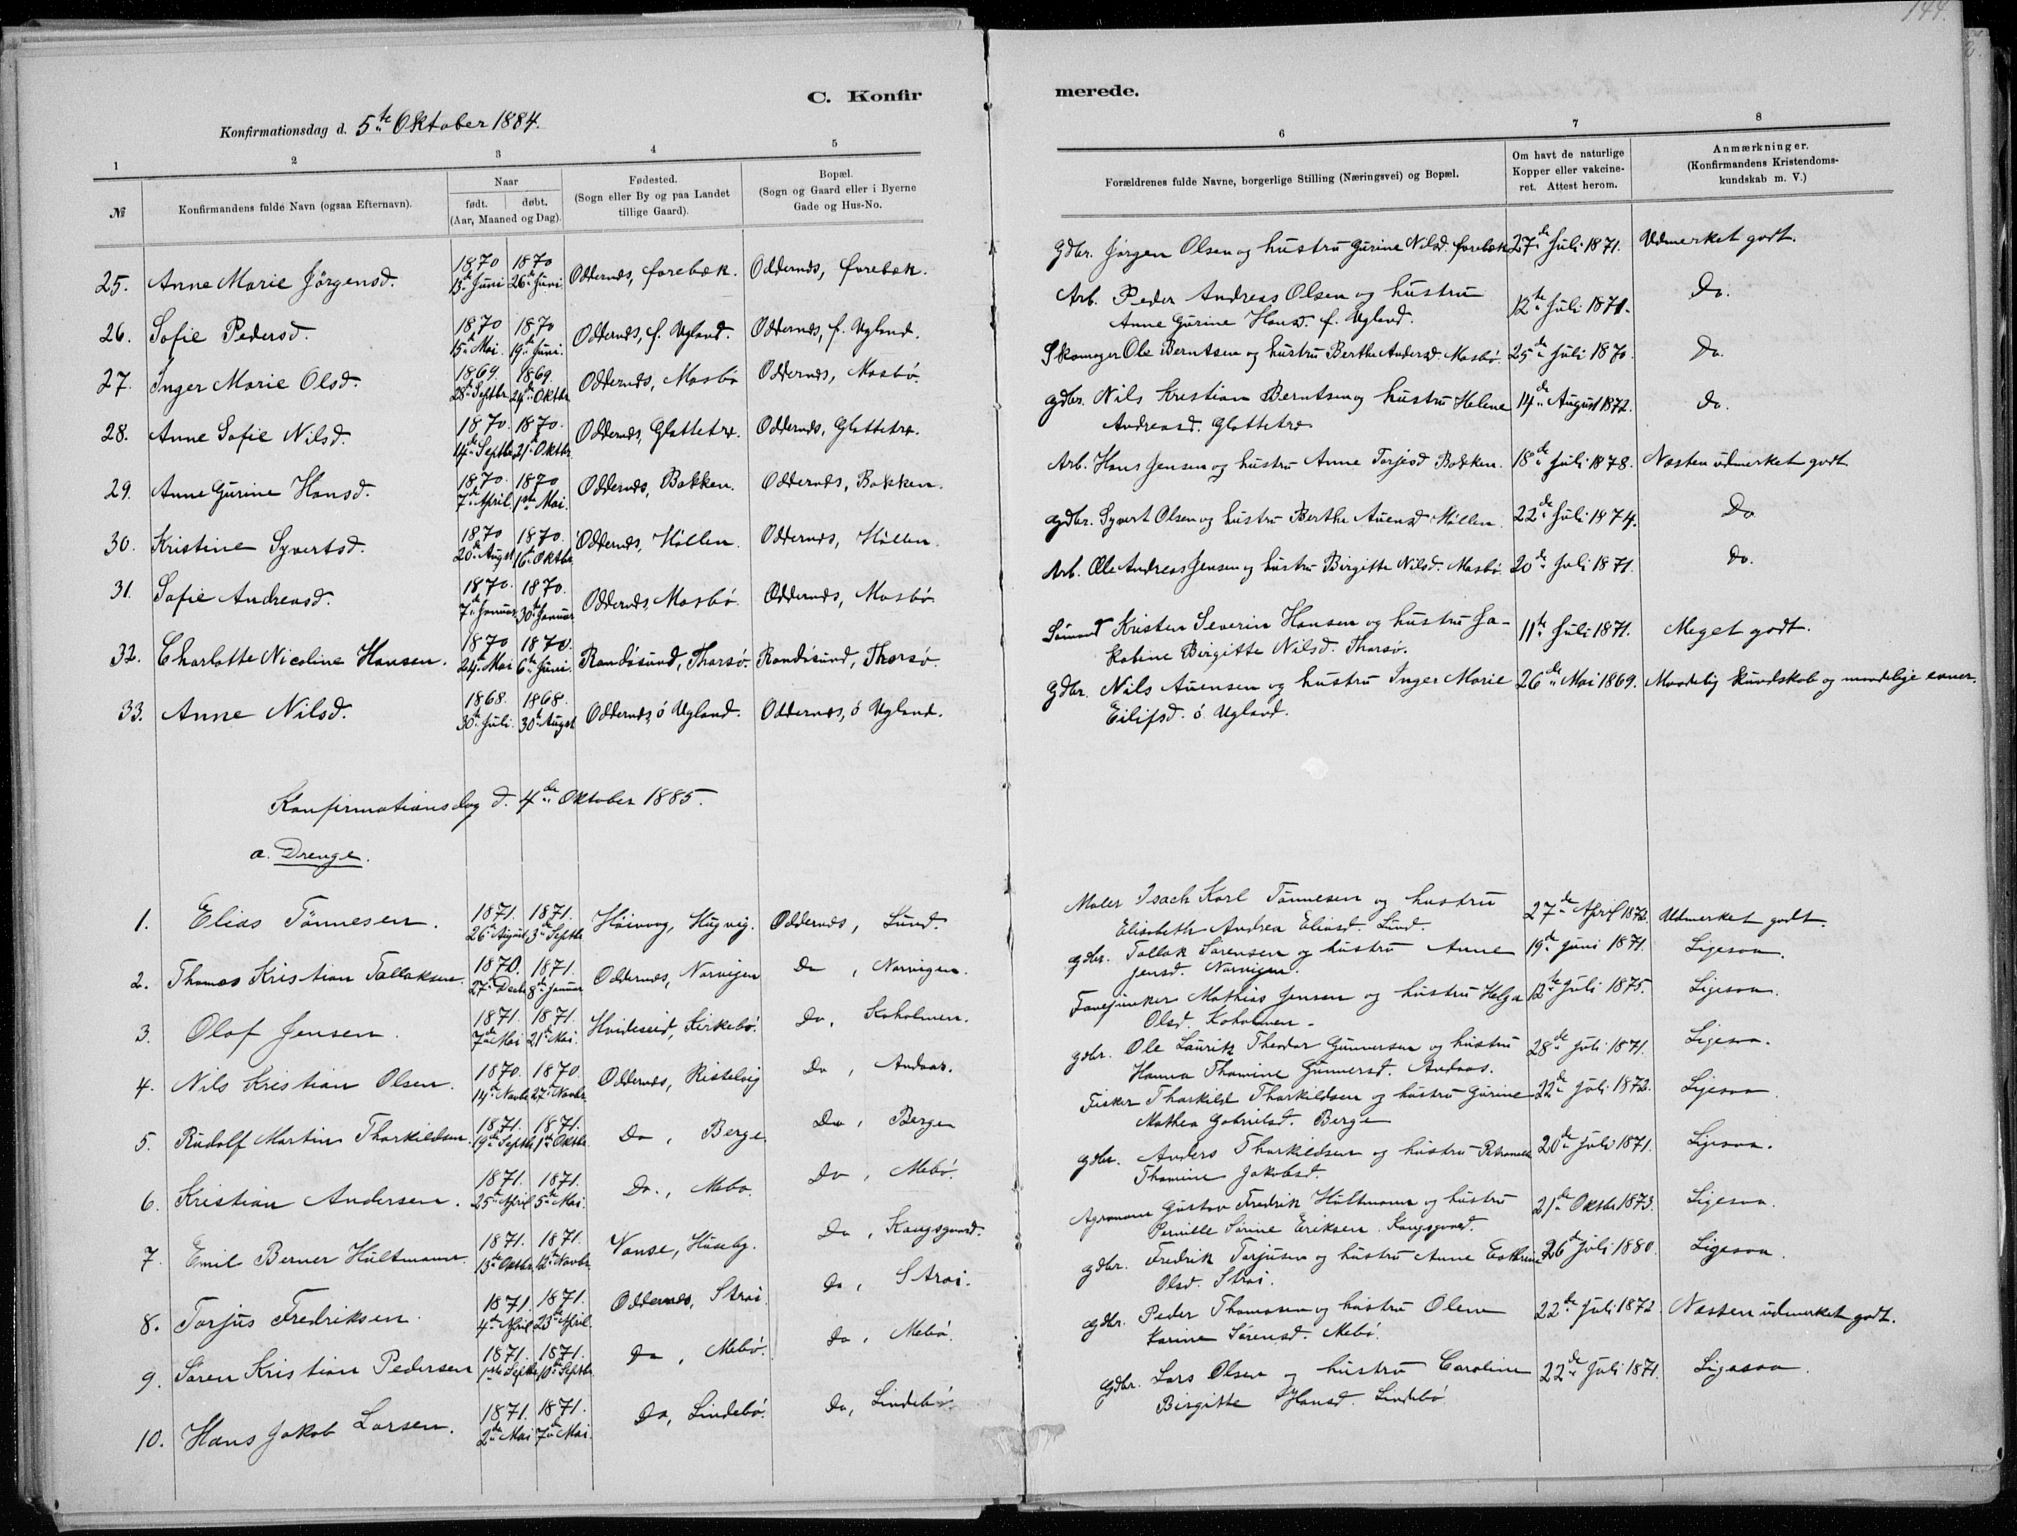 144.
C. Konfir
merede.
Konfirmationsdag d. 5te Oktober 1884.
1 2 3 4 5 6 7 8
№ Konfirmandens fulde Navn (ogsaa Efternavn).
Naar
født. døbt.
(Aar, Maaned og Dag).
Fødested.
(Sogn eller By og paa Landet
tillige Gaard).
Bopæl.
(Sogn og Gaard eller i Byerne
Gade og Hus-No.
Forældrenes fulde Navne, borgerlige Stilling (Næringsvei) og Bopæl.
Om havt de naturlige
Kopper eller vakcine-
ret. Attest herom.
Anmærkninger.
(Konfirmandens Kristendoms-
kundskab m. V.)
25. Anne Marie Jörgensd. 1870 13de Juni 1870 26de Juni Oddernæs, Forebæk. Oddernæs, Forebæk. Gdbr. Jörgen Olsen og hustru Gurine Nilsd. Forebæk 27de Juli 1871. Udmerket godt.
26. Sofie Pedersd. 1870 15de Mai. 1870 19de Juni. Oddernæs, f. Ugland. Oddernæs, f. Ugland. Arb. Peder Andreas Olsen og hustru
Anne Gurine Hansd. f. Ugland. 12te Juli 1871. Do.
27. Inger Marie Olsd. 1869. 28de Septbr 1869. 24de Oktbr Oddernæs, Mosbö Oddernæs, Mosbö. Skomager Ole Berntsen og hustru Berthe Andersd. Mosbö. 25de Juli 1870. Do.
28. Anne Sofie Nilsd. 1870. 14de Septbr 1870. 21de Oktbr Oddernæs, Glattetre. Oddernæs, Glattetre. Gdbr. Nils Kristian Berntsen og hustru Helene
Andreasd. Glattetre 14de August 1872. Do.
29. Anne Gurine Hansd. 1870. 7de April 1870 1ste Mai. Oddernæs, Bakken. Oddernæs, Bakken. Arb. Hans Jensen og hustru Anne Torjesd Bakken. 18de Juli 1878. Næsten udmerket godt
30. Kristine Syvertsd. 1870 20de Augst 1870. 16de Oktbr Oddernæs, Höllen. Oddernæs, Höllen. Gdbr. Syvert Olsen og hustru Berthe Auensd Höllen. 22de Juli 1874. Do
31. Sofie Andreasd. 1870. 7de Januar 1870. 30te Januar Oddernæs Mosbö. Oddernæs, Mosbö Arb. Ole Andreas Jensen og hustru Birgitte Nilsd. Mosbö. 20de Juli 1871. Do.
32. Charlotte Nicoline Hansen. 1870 24de Mai 1870. 6te Juni. Randösund, Thorsö. Randösund, Thorsö. Sömand Kristen Severin Hansen og hustru Ja-
kobine Birgitte Nilsd. Thorsö. 11te Juli 1871. Meget godt.
33. Anne Nilsd. 1868. 30te Juli. 1868. 30te Augst Oddernæs ö Ugland. Oddernæs, ö Ugland. Gdbr. Nils Auensen og hustru Inger Marie
Eilifsd. ö. Ugland. 26de Mai 1869. Maadelig kundskab og maadelige evner.
Konfirmationsdag d. 4de Oktober 1885.
a. Drenge.
1. Elias Tönnesen. 1871. 26de August 1871. 3de Septbr Höivaag, Hugvig. Oddernæs, Lund. Maler Isach Karl Tönnesen og hustru
Elisabeth Andrea Eliasd. Lund. 27de April 1872. Udmerket godt.
2. Thomas Kristian Tallaksen. 1870. 27de Decbr 1871. 8de Januar Oddernæs, Narvigen Do, Narvigen. Gdbr. Tallak Sörensen og hustru Anne
Jensd. Narvigen. 19de Juni 1871. Ligesaa.
3. Olaf Jensen. 1871. 7de Mai 1871. 21de Mai. Hvideseid, Kirkebö. Do, Koholmen. Fanejunker Mathias Jensen og hustru Helga
Olsd. Koholmen. 12te Juli 1875. Ligesaa.
4. Nils Kristian Olsen. 1870. 14de Novbr 1870. 27de Novbr. Oddernæs, Ristelvig Do, Andaas. Gdbr. Ole Lauritz Theodor Gunnersen og hustru
Hanna Thomine Gunnersd. Andaas. 28de Juli 1871. Ligesaa.
5. Rudolf Martin Tharkildsen. 1871. 19de Septbr 1871. 1ste Oktbr. Do, Berge Do, Berge Fisker Tharkild Tharkildsen og hustru Gurine
Mathea Gabrielsd. Berge 22de Juli 1872. Ligesaa
6. Kristian Andersen. 1871. 25de April 1871. 5te Mai. Do., Mebö. Do, Mebö. Gdbr. Anders Tharkildsen og hustru Petronelle
Thomine Jakobsd. 20de Juli 1871. Ligesaa.
7. Emil Berner Hultmann. 1871. 13de Oktbr. 1871. 12te Novbr. Vanse, Huseby. Do, Kongsgaard. Agronom Gustav Fredrik Hultmann og hustru
Pernille Sörine Eriksen. Kongsgaard. 21de Oktbr 1873. Ligesaa.
8. Torjus Fredriksen. 1871. 4de April 1871. 23de April. Oddernæs, Strai. Do, Strai. Gdbr. Fredrik Torjusen og hustru Anne
Olsd. Strai. 26de Juli 1880. Ligesaa.
9. Sören Kristian Pedersen 1871. 1ste Septbr 1871. 10de Septbr. Do, Mebö. Do, Mebö. Gdbr. Peder Thomasen og hustru Olene
Karine Sörensd. Mebö. 22de Juli 1872 Næsten udmerket godt.
10. Hans Jakob Larsen. 1871. 2de Mai 1871. 7de Mai. Do, Lindebö. Do, Lindebö. Gdbr. Lars Olsen og hustru Caroline
Birgitte Hansd. Lindebö 22de Juli 1871. Ligesaa.